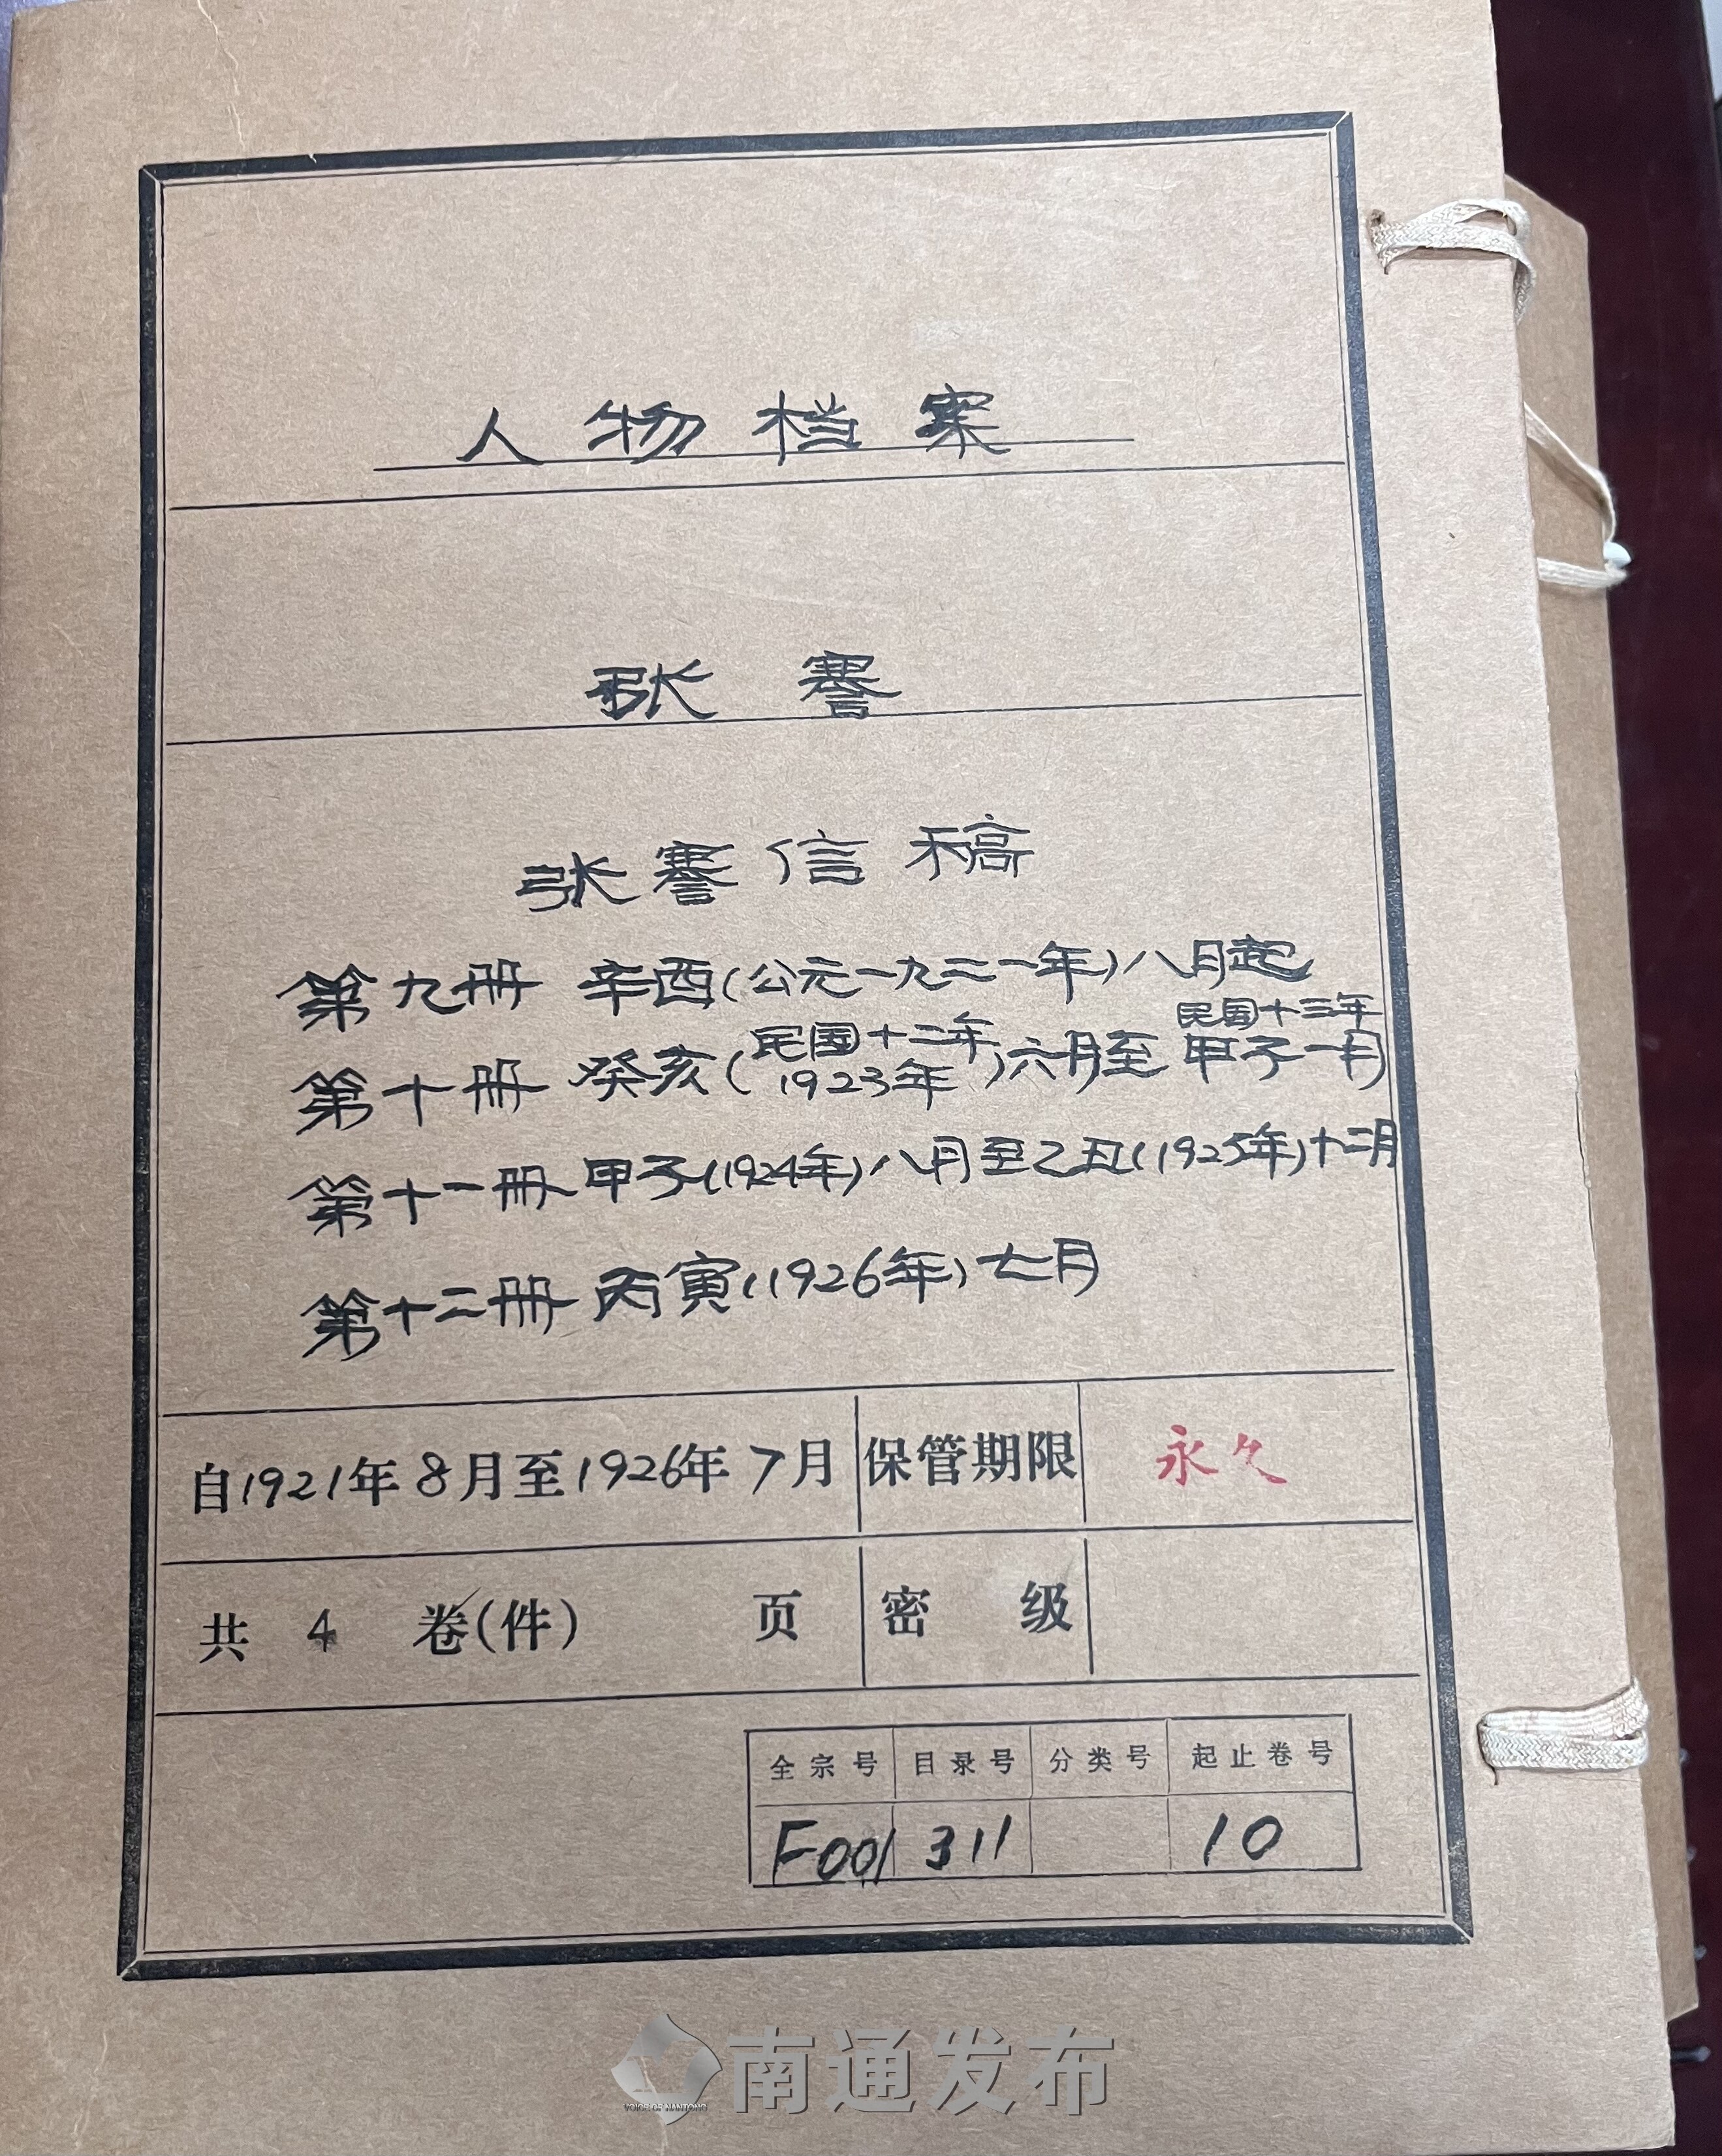 人物档案
张謇
张謇信稿
第九册 辛酉(公元一九二一年)八月起
第十册 癸亥(民国十二年 1923年)六月至 民国十三年 甲子一月
第十一册 甲子(1924年)八月至乙丑(1925年)十二月
第十二册 丙寅(1926年)七月
自1921年8月至1926年7月 保管期限 永久
共 4 卷(件) 页 密级
全宗号 目录号 分类号 起止卷号
F001 311 10
南通发布
VOICE OF NANTONG